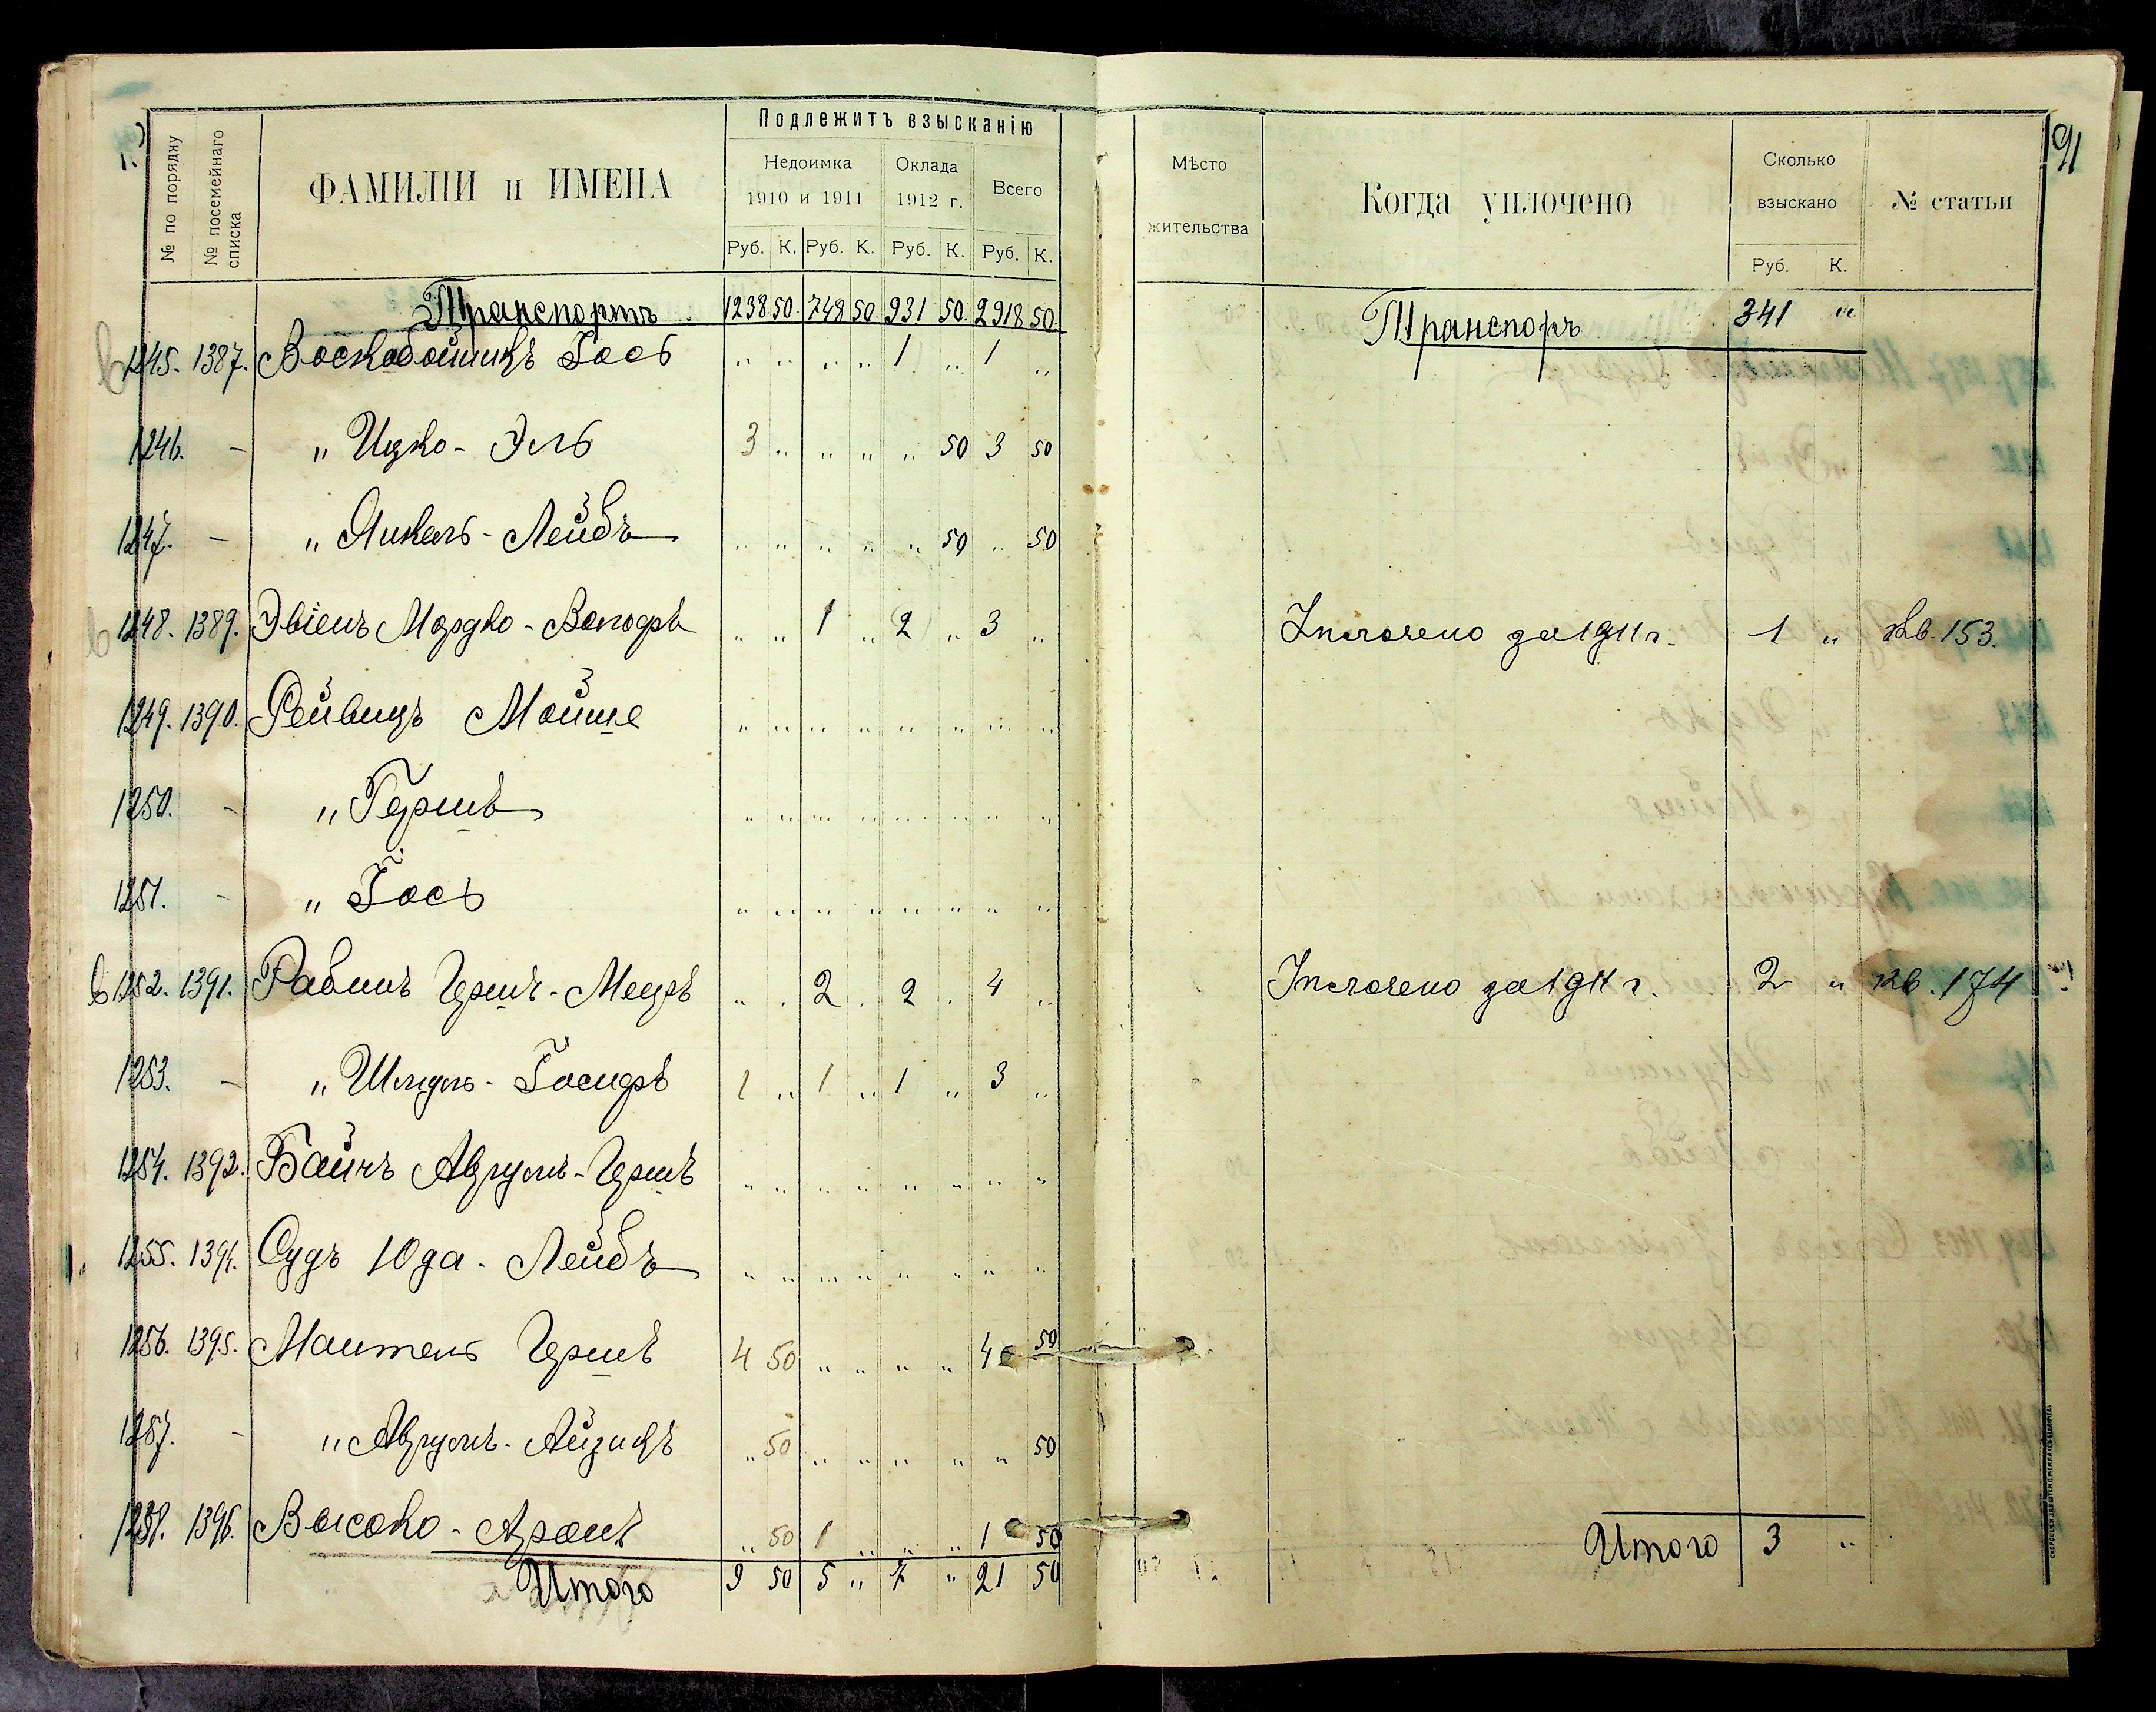 91
№ по порядку
№ посемейнаго списка
ФАМИЛІИ и ИМЕНА
Подлежитъ взысканію
Недоимка
1910 и 1911
Оклада
1912 г.
Всего
Руб. К. Руб. К. Руб. К. Руб. К.
Мѣсто
жительства
Когда уплочено
Сколько
взыскано
Руб. К.
№ статьи
Транспортъ 1238 50 748 50 931 50 2918 50
Транспорт 341 "
1245. 1387. Воскобойникъ Іось " " " " 1 " 1 "
1246. - " Ицко - Эль 3 " " " " 50 3 50
1247. - " Янкель - Лейбъ " " " " " 50 " 50
1248. 1389. Мордко - " " 1 " 2 " 3 "
Уплочено за 1911 г. 1 " кв. 153.
1249. 1390. Рейвицъ Мойше " " " " " " " "
1250. - " Гершъ " " " " " " " "
1251. - " Іось " " " " " " " "
1252. 1391. Рабинъ Гершъ - Мееръ " " 2 " 2 " 4 "
Уплочено за 1911 г. 2 " кв. 174
1253. - " 1 " 1 " 1 " 3 "
1254. 1392. Аврумъ - Гершъ " " " " " " " "
1255. 1394. Судъ Юда - Лейбъ " " " " " " " "
1256. 1395. Мантель Гершъ 4 50 " " " " 4 50
1257. - " Аврумъ - Айзикъ " 50 " " " " " 50
1258. 1396. Высоко - Аронъ " 50 1 " " " 1 50
Итого 9 50 5 " 7 " 21 50
Итого 3 "